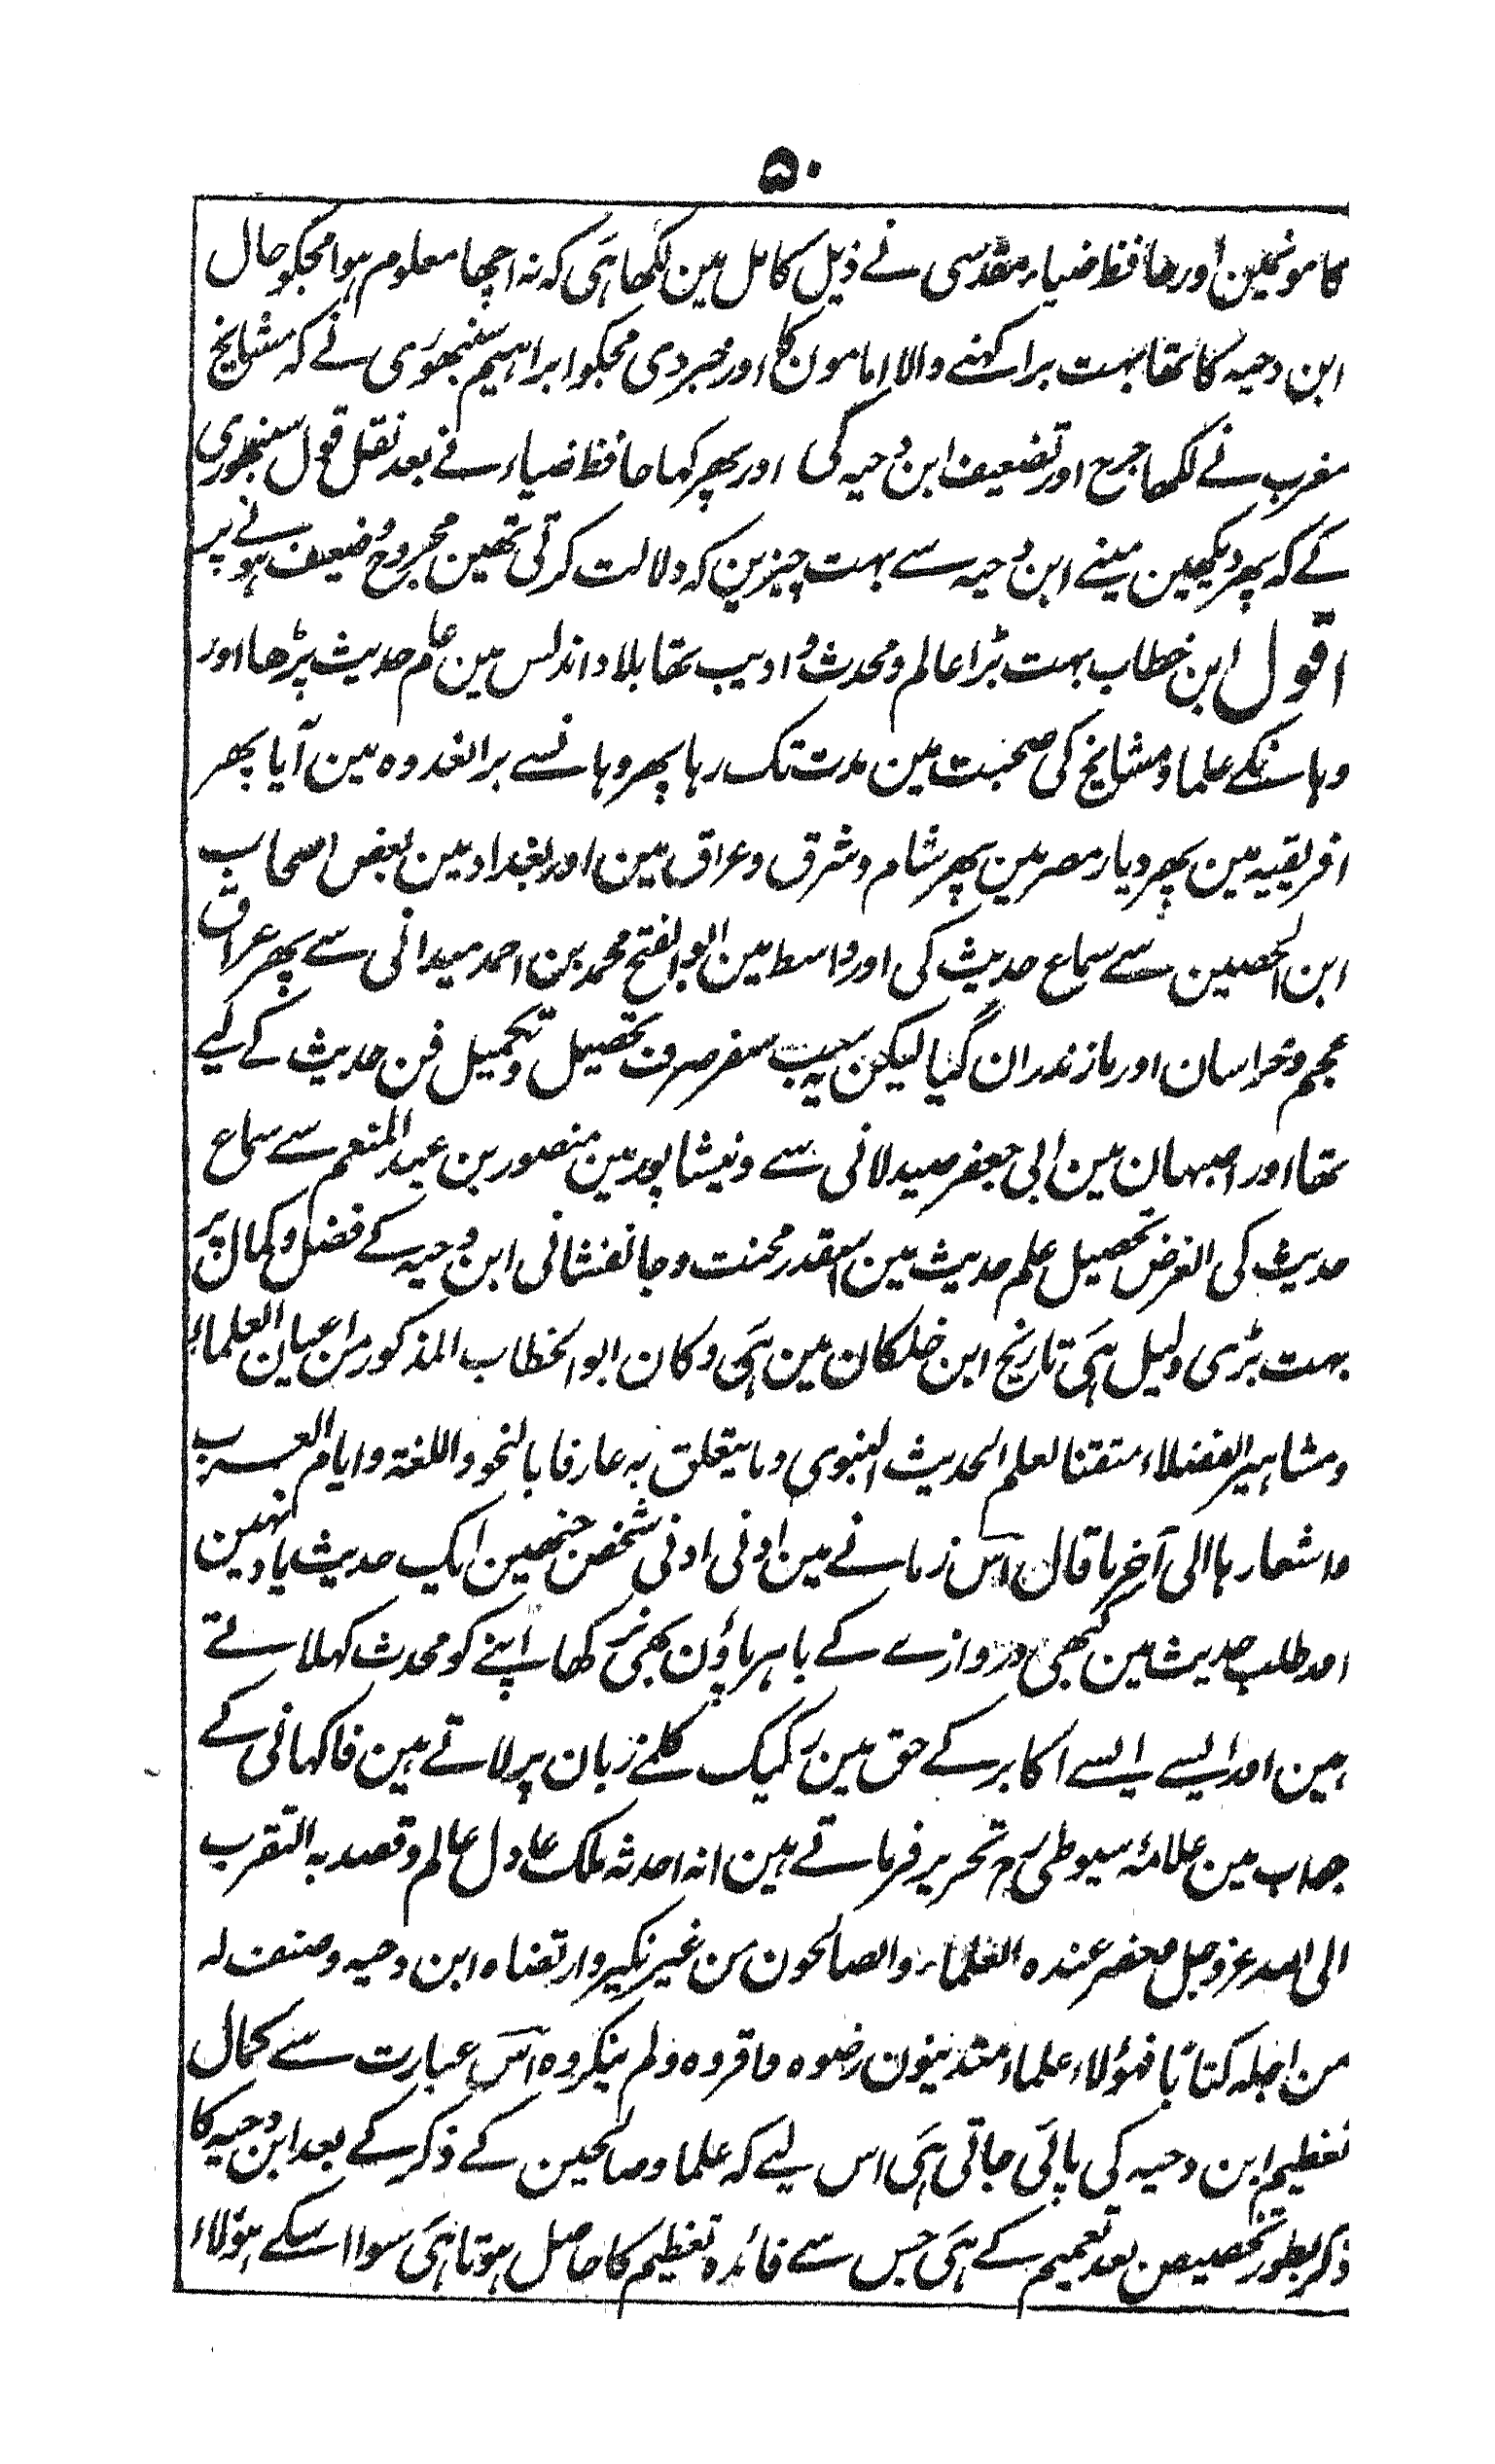 ۵۰
کا مونھین اور حافظ ضیاء مقدسی نے ذیل کامل مین لکھا ہَی کہ نہ اچھا معلوم ہوا مجکو حال
ابن دحیہ کا تھا بہت برا کہنے والا امامون کا اور خبر دی مجکو ابراہیم سنہوری نے کہ مشایخ
مغرب نے لکھا جرح اور تضعیف ابن دحیہ کی اور پھر کہا حافظ ضیاء نے بعد نقل قول سنہوری
کے کہ پھر دیکھین مینے ابن دحیہ سے بہت چیزین کہ دلالت کرتی تھین مجروح و ضعیف ہونے پر
اقول ابن خطاب بہت بڑا عالم و محدث و ادیب تھا بلاد اندلس مین علم حدیث پڑھا اور
وہانکے علما و مشایخ کی صحبت مین مدت تک رہا پھر وہانسے بر العدوہ مین آیا پھر
افریقیہ مین پھر دیار مصر مین پھر شام و شرق و عراق مین اور بغداد مین بعض اصحاب
ابن الحصین سے سماع حدیث کی اور واسط مین ابو الفتح محمد بن احمد میدانی سے پھر عراق
عجم و خراسان اور مازندران گیا لیکن یہ سب سفر صرف تحصیل و تکمیل فن حدیث کے لیے
تھا اور اصبہان مین ابی جعفر صیدلانی سے و نیشاپور مین منصور بن عبد المنعم سے سماع
حدیث کی الغرض تحصیل علم حدیث مین اسقدر محنت و جانفشانی ابن دحیہ کے فضل و کمال پر
بہت بڑی دلیل ہَی تاریخ ابن خلکان مین ہَی و کان ابو الخطاب المذکور من اعیان العلماء
و مشاہیر الفضلاء متقنا لعلم الحدیث النبوی و ما یتعلق بہ عارفا بالنحو و اللغۃ و ایام العرب
و اشعارہا الی آخر ما قال اس زمانے مین ادنی ادنی شخص جنھین ایک حدیث یاد نہین
اور طلب حدیث مین کبھی دروازے کے باہر پاؤن بھی نرکھا اپنے کو محدث کہلاتے
ہین اور ایسے ایسے اکابر کے حق مین رکیک کلمے زبان پر لاتے ہین فاکہانی کے
جواب مین علامۂ سیوطی رح تحریر فرماتے ہین انہ احدثہ ملک عادل عالم و قصد بہ التقرب
الی اللہ عز و جل محضر عندہ العلماء و الصالحون من غیر نکیر و ارتضاہ ابن دحیہ و صنف لہ
من اجلہ کتابًا فہؤلاء علماء متدینون رضوہ و اقروہ و لم ینکروہ اس عبارت سے کمال
تعظیم ابن دحیہ کی پائی جاتی ہَی اس لیے کہ علما و صالحین کے ذکر کے بعد ابن دحیہ کا
ذکر بطور تخصیص بعد تعمیم کے ہَی جس سے فائدہ تعظیم کا حاصل ہوتا ہَی سوا اسکے ہؤلاء